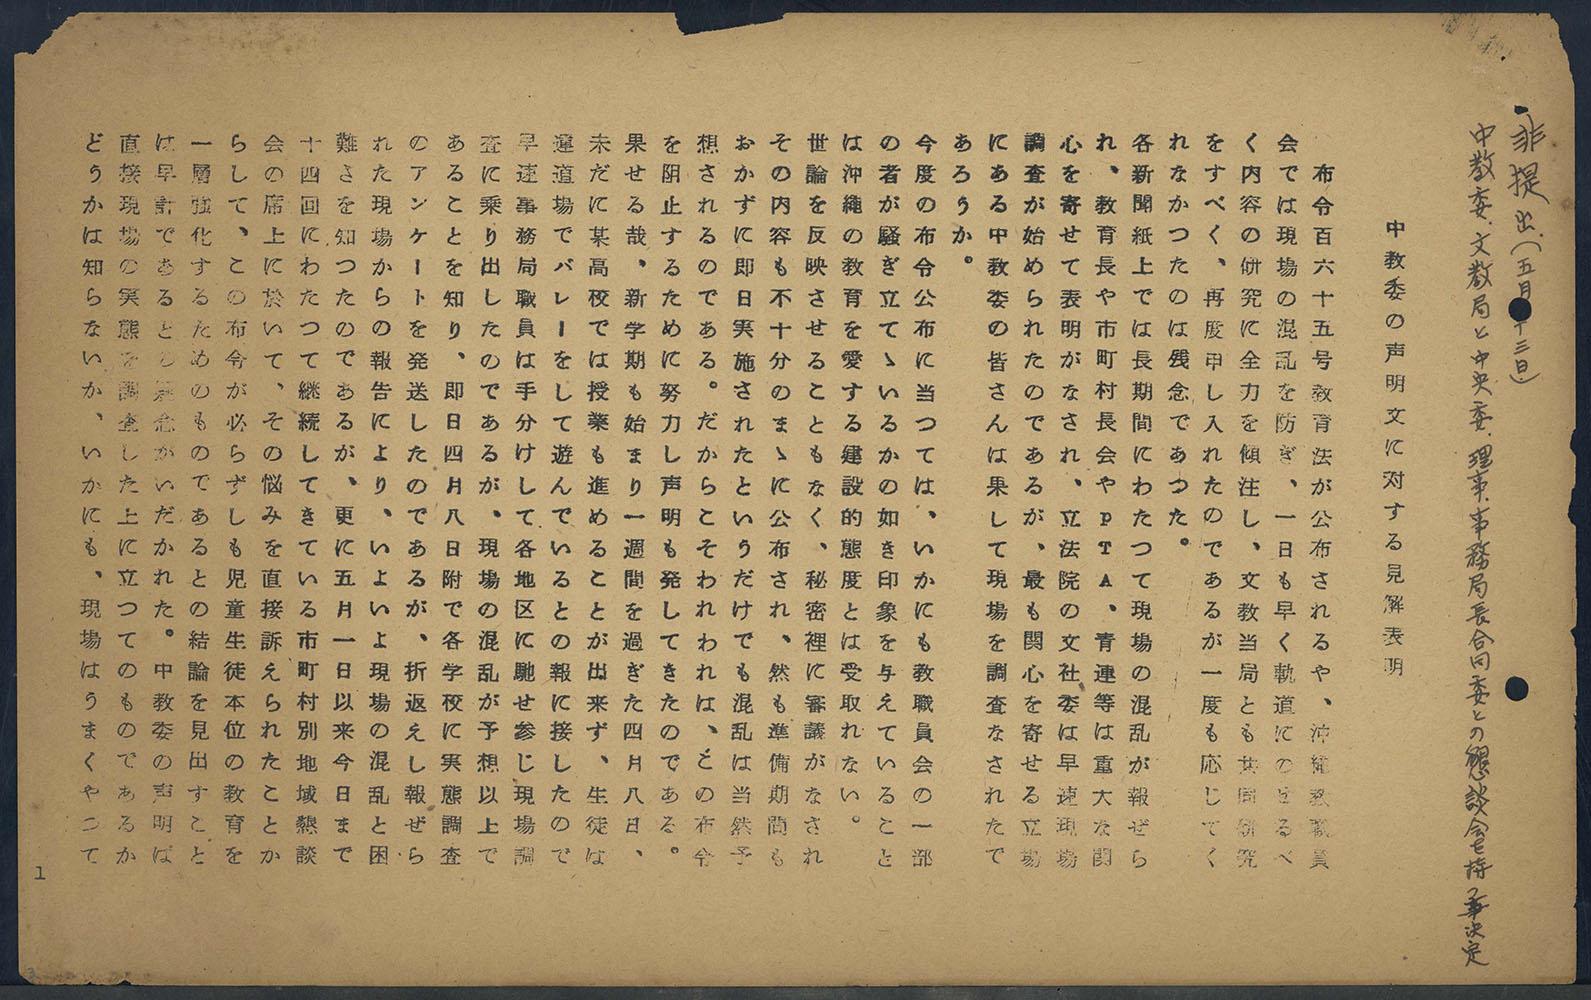 非提出(五月十三日)
中教委、文教局と中央委、理事、事務局長合同委との懇談会を持つ事決定
中教委の声明文に対する見解表明
布令百六十五号教育法が公布されるや、沖縄教職員
会では現場の混乱を防ぎ、一日も早く軌道にのせるべ
く内容の研究に全力を傾注し、文教当局とも共同研究
をすべく、再度申し入れたのであるが一度も応じてく
れなかつたのは残念であつた。
各新聞紙上では長期間にわたつて現場の混乱が報ぜら
れ、教育長や市町村長会やPTA、青連等は重大な関
心を寄せて表明がなされ、立法院の文社委は早速現場
調査が始められたのであるが、最も関心を寄せる立場
にある中教委の皆さんは果して現場を調査なされたで
あろうか。
今度の布令公布に当つては、いかにも教職員会の一部
の者が騒ぎ立てゝいるかの如き印象を与えていること
は沖縄の教育を愛する建設的態度とは受取れない。
世論を反映させることともなく、秘密裡に審議がなされ
その内容も不十分のまゝに公布され、然も準備期間も
おかずに即日実施されたというだけでも混乱は当然予
想されるのである。だからこそわれわれは、この布令
を阻止するために努力し声明も発してきたのである。
果せる哉、新学期も始まり一週間を過ぎた四月八日、
未だに某高校では授業も進めることが出来ず、生徒は
運道場でバレーをして遊んでいるとの報に接したので
早速事務局職員は手分けして各地区に馳せ参じ現場調
査に乗り出したのであるが、現場の混乱が予想以上で
あることを知り、即日四月八日附で各学校に実態調査
のアンケートを発送したのであるが、折返えし報ぜら
れた現場からの報告により、いよいよ現場の混乱と困
難さを知つたのであるが、更に五月一日以来今日まで
十四回にわたつて継続してきている市町村別地域懇談
会の席上に於いて、その悩みを直接訴えられたことか
らして、この布令が必らずしも児童生徒本位の教育を
一層強化するためのものであるとの結論を見出すこと
は早計であるとの疑念がいだかれた。中教委の声明は
直接現場の実態を調査した上に立つてのものであるか
どうかは知らないか、いかにも、現場はうまくやつて
1